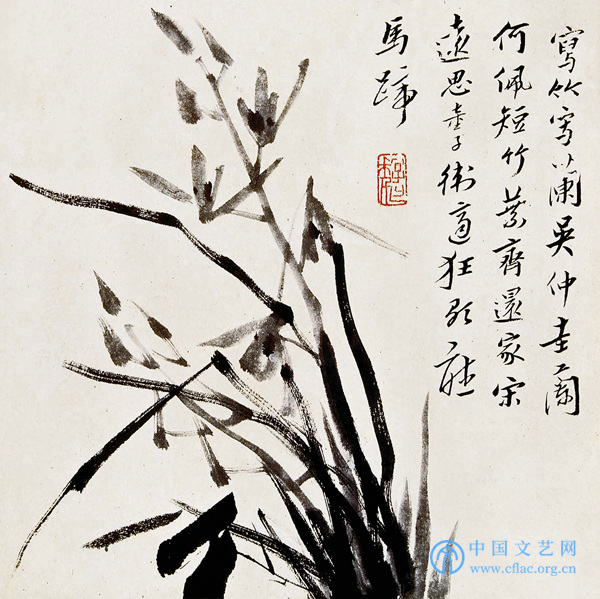 寫竹寫蘭吳仲圭蘭
何佩短竹葉齊還家宋
遠思 狂
馬蹄
中国文艺网
www.cflac.org.cn